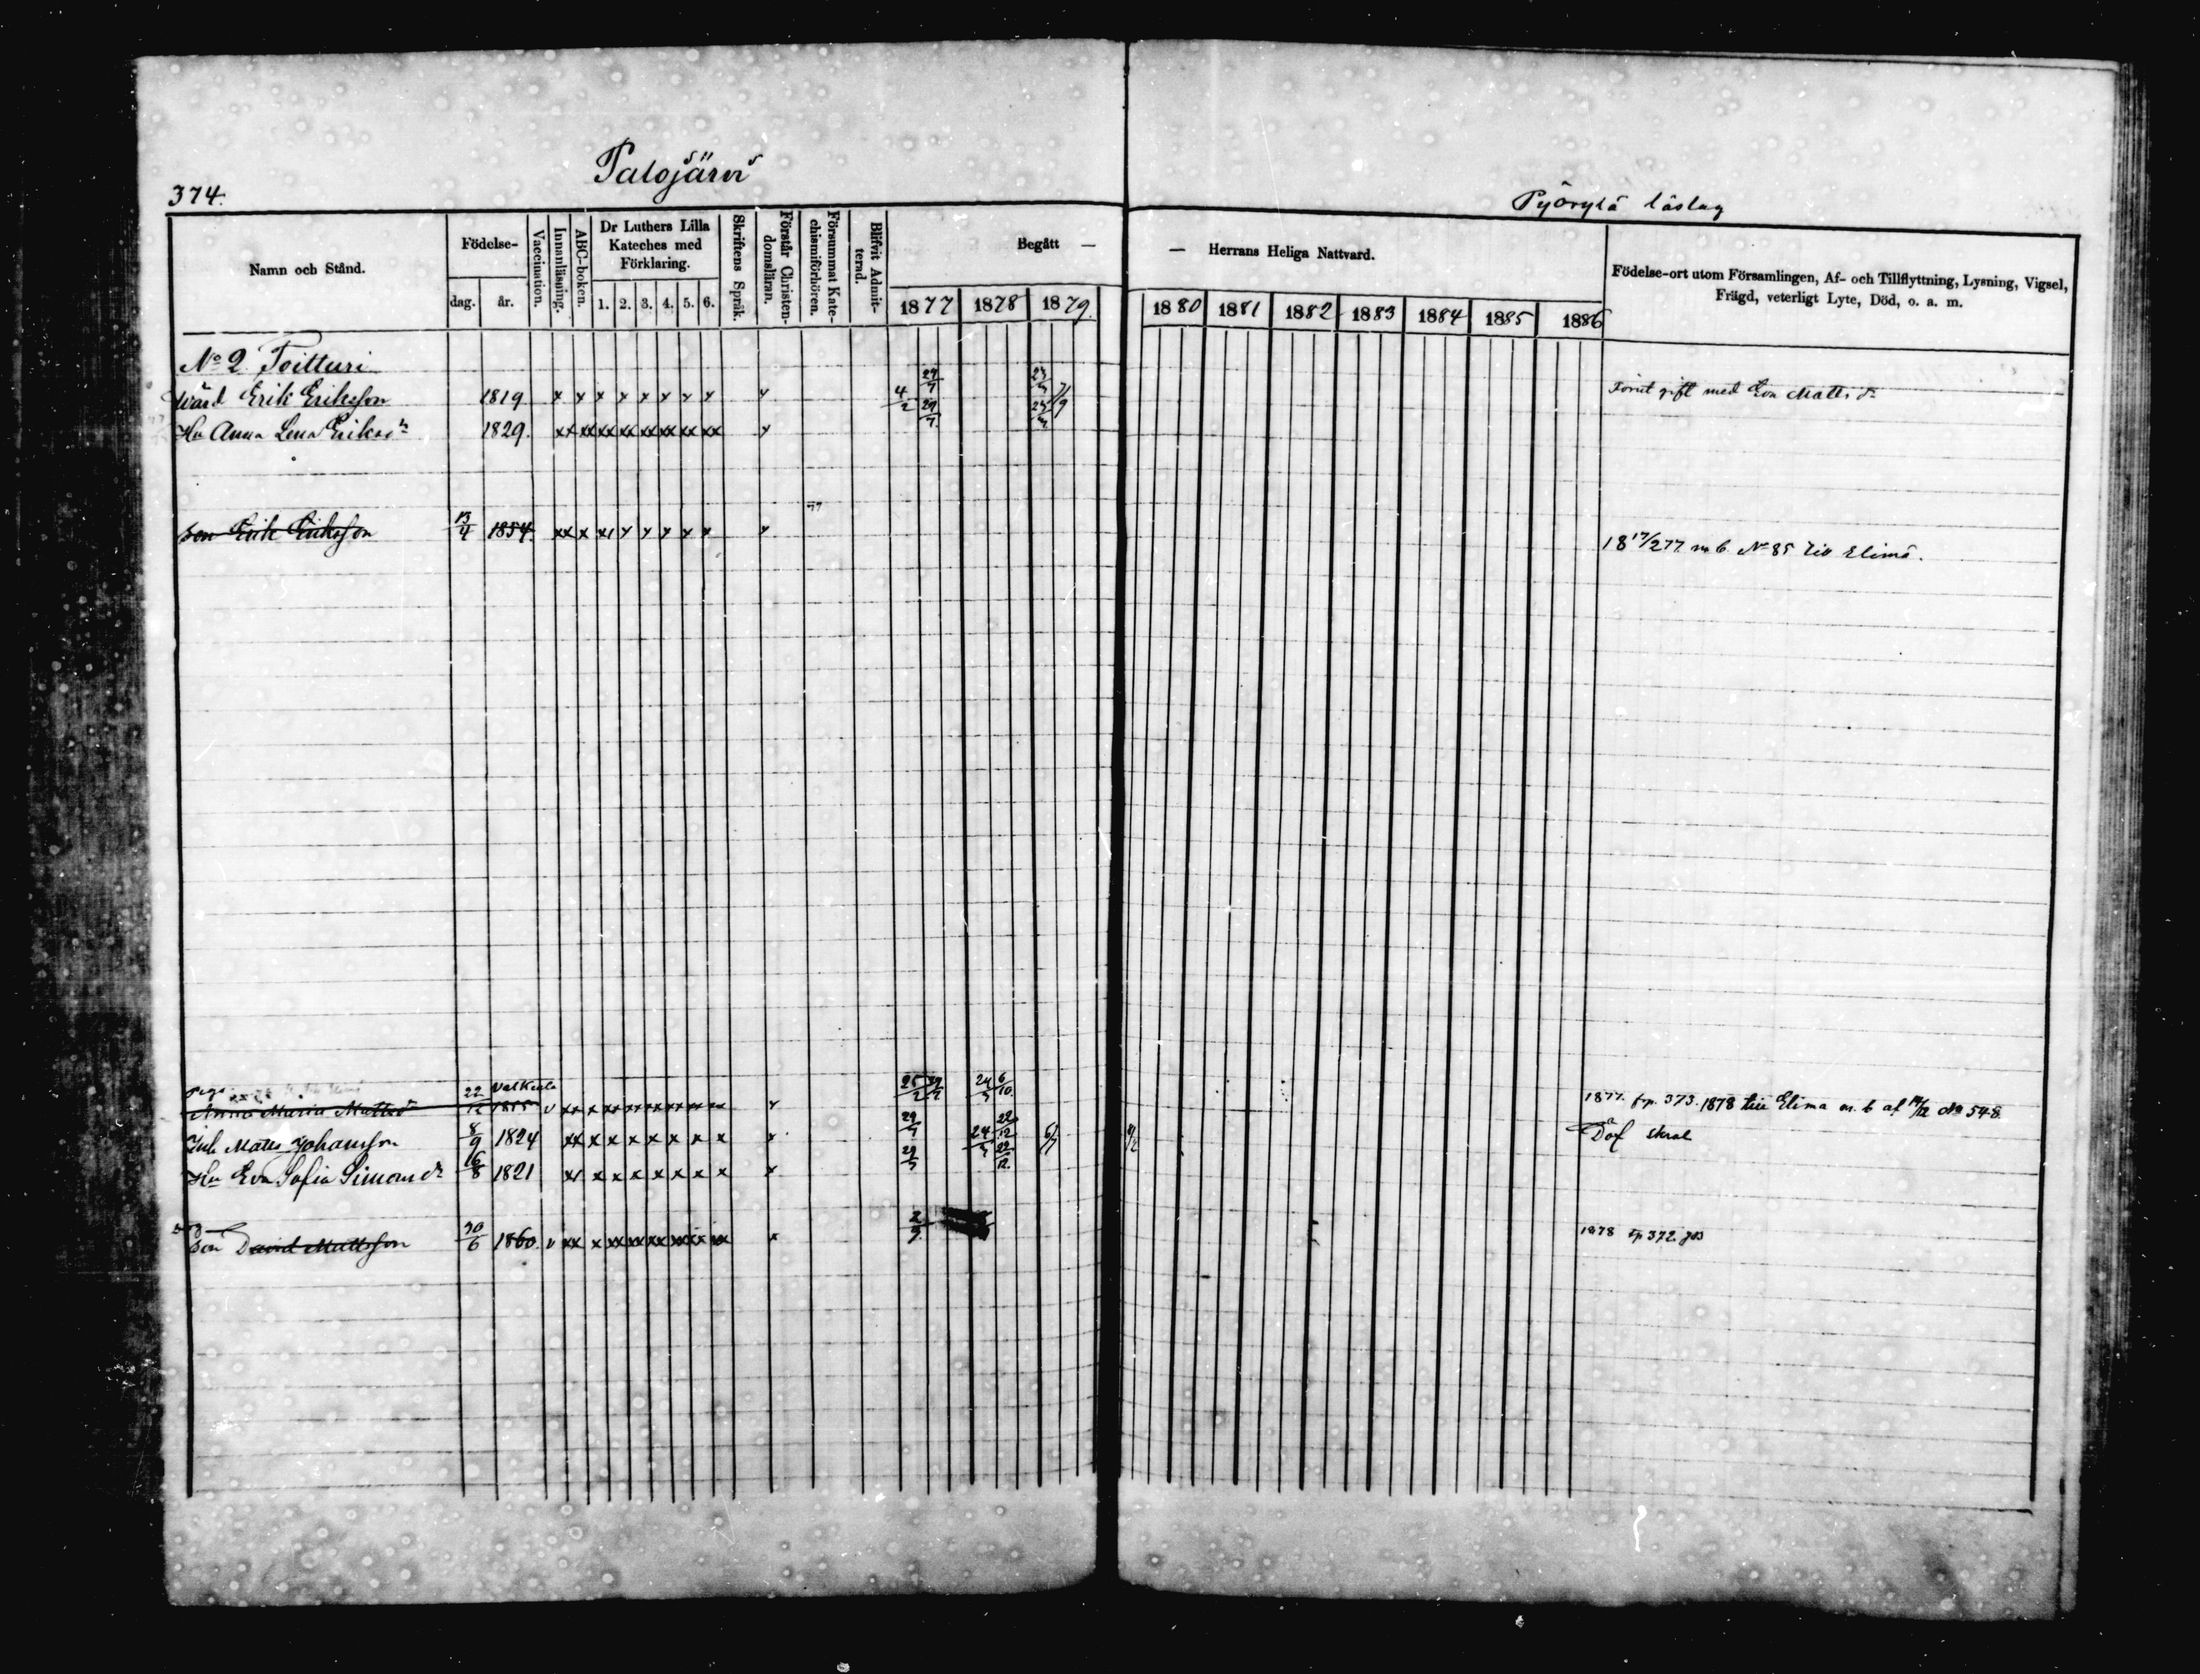 374.
Talojärvi
Pyörylä läslag
Namn och Stånd.
Födelse-
dag.
år.
Vaccination.
Innanläsning.
ABC-boken.
Dr Luthers Lilla Kateches med Förklaring.
1. 2. 3. 4. 5. 6.
Skriftens Språk.
Förstår Christen-domsläran.
Försummat Kate-chismiförhören.
Blifvit Admit-terad.
Begått —
— Herrans Heliga Nattvard.
1877 1878 1879.
1880 1881 1882 1883 1884 1885 1886
Födelse-ort utom Församlingen, Af- och Tillflyttning, Lysning, Vigsel,
Frägd, veterligt Lyte, Död, o. a. m.
No 2 Toitturi
Wärd Erik Eriksson 1819 x x x x x x x x 4/2 29/7 Förut gift med Eva Mattsdr
Hu Anna Lena Eriksdr 1829. xx xx xx xx xx xx xx xx 29/7
77
son Erik Eriksson 13/4 1854. xx x
18 17/2 77 m b. No 85 till Elimä.
Valkeala
Anna Maria Mattsdr 22/12 1815 25/2 6/10 1877. frp. 373. 1878 till Elima m. b af No 548.
Inh Mats Johansson 8/9 1824 xx x x x x x x x 29/7 22/12 Döf skral
Hu Eva Sofia Simonsdr 16/8 1821 29/7 22/12
son David Mattsson 30/6 1860. 1878 tp 372